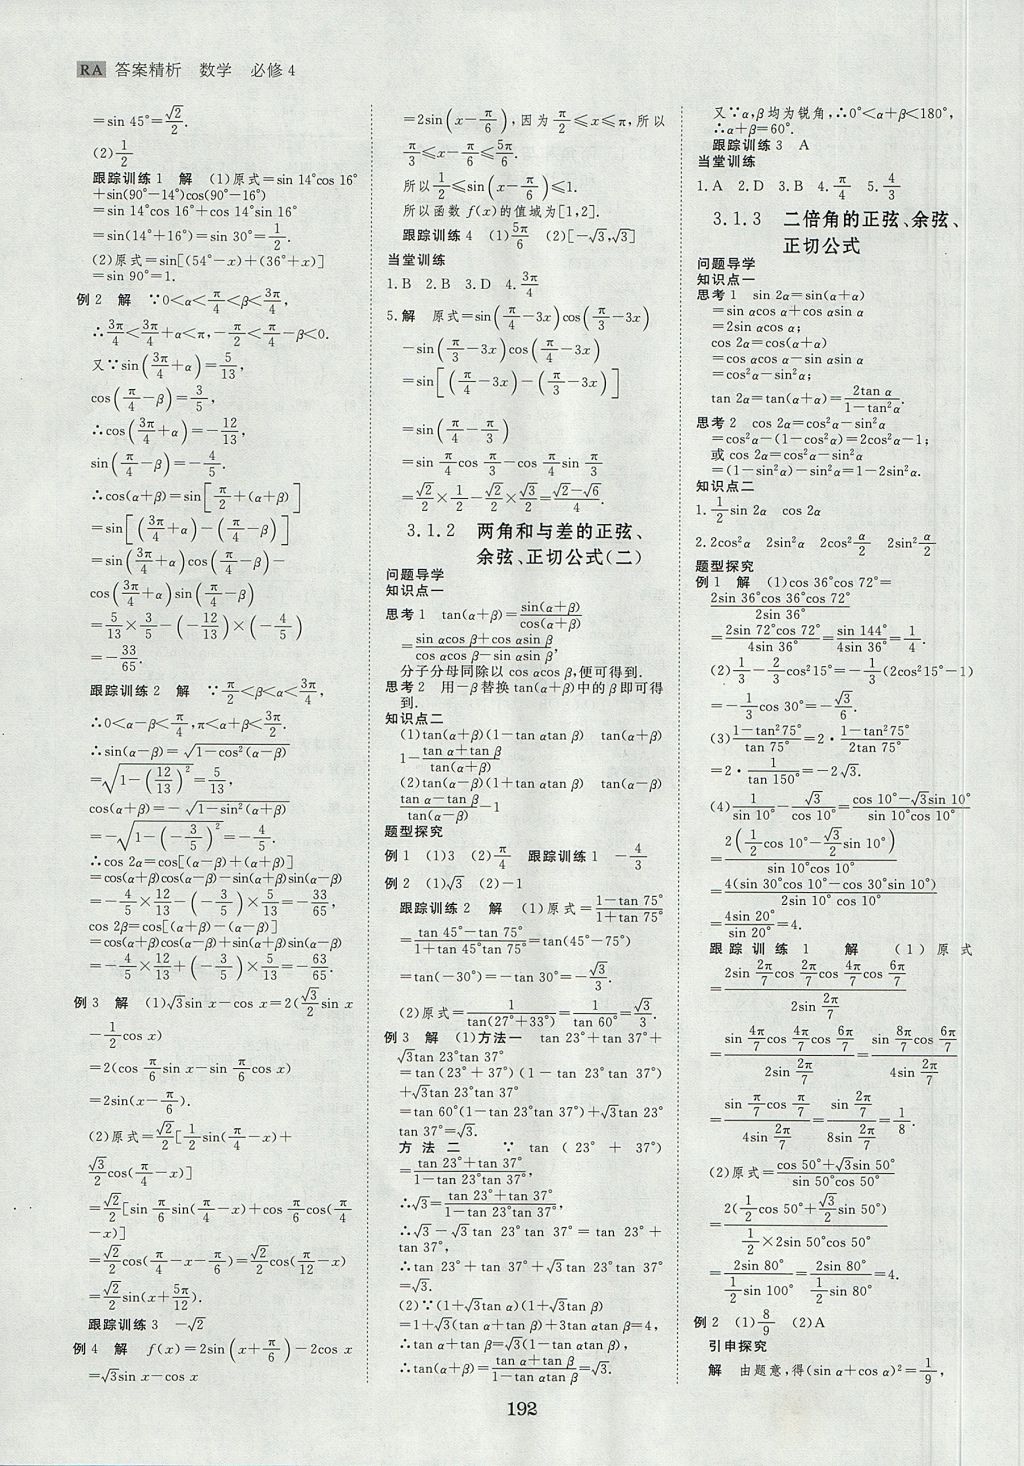 RA 答案精析 数学 必修4
=sin 45°=√2/2.
(2)1/2
跟踪训练1 解 (1)原式=sin 14°cos 16°
+sin(90°-14°)cos(90°-16°)
=sin 14°cos 16°+cos 14°sin 16°
=sin(14°+16°)=sin 30°=1/2.
(2)原式=sin[(54°-x)+(36°+x)]
=sin 90°=1.
例2 解 ∵0<α<π/4<β<3π/4,
∴3π/4<3π/4+α<π,-π/2<π/4-β<0.
又∵sin(3π/4+α)=5/13,
cos(π/4-β)=3/5,
∴cos(3π/4+α)=-12/13,
sin(π/4-β)=-4/5.
∴cos(α+β)=sin[π/2+(α+β)]
=sin[(3π/4+α)-(π/4-β)]
=sin(3π/4+α)cos(π/4-β)-
cos(3π/4+α)sin(π/4-β)
=5/13×3/5-(-12/13)×(-4/5)
=-33/65.
跟踪训练2 解 ∵π/2<β<α<3π/4,
∴0<α-β<π/4,π<α+β<3π/2.
∴sin(α-β)=√(1-cos²(α-β))
=√(1-(12/13)²)=5/13,
cos(α+β)=-√(1-sin²(α+β))
=-√(1-(-3/5)²)=-4/5.
∴cos 2α=cos[(α-β)+(α+β)]
=cos(α+β)cos(α-β)-sin(α+β)sin(α-β)
=-4/5×12/13-(-3/5)×5/13=-33/65,
cos 2β=cos[(α+β)-(α-β)]
=cos(α+β)cos(α-β)+sin(α+β)sin(α-β)
=-4/5×12/13+(-3/5)×5/13=-63/65.
例3 解 (1)√3sin x-cos x=2(√3/2sin x
-1/2cos x)
=2(cos π/6sin x-sin π/6cos x)
=2sin(x-π/6).
(2)原式=√2/2[1/2sin(π/4-x)+
√3/2cos(π/4-x)]
=√2/2[sin π/6sin(π/4-x)+cos π/6cos(π/4
-x)]
=√2/2cos(π/4-x-π/6)=√2/2cos(π/12-x)
=√2/2sin(x+5π/12).
跟踪训练3 -√2
例4 解 f(x)=2sin(x+π/6)-2cos x
=√3sin x-cos x
=2sin(x-π/6),因为π/2≤x≤π,所以
π/3≤x-π/6≤5π/6.
所以1/2≤sin(x-π/6)≤1.
所以函数f(x)的值域为[1,2].
跟踪训练4 (1)5π/6 (2)[-√3,√3]
当堂训练
1.B 2.B 3.D 4.3π/4
5.解 原式=sin(π/4-3x)cos(π/3-3x)
-sin(π/3-3x)cos(π/4-3x)
=sin[(π/4-3x)-(π/3-3x)]
=sin(π/4-π/3)
=sin π/4cos π/3-cos π/4sin π/3
=√2/2×1/2-√2/2×√3/2=(√2-√6)/4.
3.1.2 两角和与差的正弦、
余弦、正切公式(二)
问题导学
知识点一
思考1 tan(α+β)=sin(α+β)/cos(α+β)
=(sin αcos β+cos αsin β)/(cos αcos β-sin αsin β),
分子分母同除以cos αcos β,便可得到.
思考2 用-β替换tan(α+β)中的β即可得
到.
知识点二
(1)tan(α+β)(1-tan αtan β) tan(α+β)
1-(tan α+tan β)/tan(α+β)
(2)tan(α-β)(1+tan αtan β) tan(α-β)
(tan α-tan β)/tan(α-β)-1
题型探究
例1 (1)3 (2)π/4 跟踪训练1 -4/3
例2 (1)√3 (2)-1
跟踪训练2 解 (1)原式=(1-tan 75°)/(1+tan 75°)
=(tan 45°-tan 75°)/(1+tan 45°tan 75°)=tan(45°-75°)
=tan(-30°)=-tan 30°=-√3/3.
(2)原式=1/tan(27°+33°)=1/tan 60°=√3/3.
例3 解 (1)方法一 tan 23°+tan 37°+
√3tan 23°tan 37°
=tan(23°+37°)(1-tan 23°tan 37°)
+√3tan 23°tan 37°
=tan 60°(1-tan 23°tan 37°)+√3tan 23°
tan 37°=√3.
方法二 ∵tan(23°+37°)
=(tan 23°+tan 37°)/(1-tan 23°tan 37°)
∴√3=(tan 23°+tan 37°)/(1-tan 23°tan 37°),
∴√3-√3tan 23°tan 37°=tan 23°+
tan 37°,
∴tan 23°+tan 37°+√3tan 23°tan 37°
=√3.
(2)∵(1+√3tan α)(1+√3tan β)
=1+√3(tan α+tan β)+3tan αtan β=4,
∴tan α+tan β=√3(1-tan αtan β),
∴tan(α+β)=(tan α+tan β)/(1-tan αtan β)=√3.
又∵α,β均为锐角,∴0°<α+β<180°,
∴α+β=60°.
跟踪训练3 A
当堂训练
1.A 2.D 3.B 4.π/4 5.4/3
3.1.3 二倍角的正弦、余弦、
正切公式
问题导学
知识点一
思考1 sin 2α=sin(α+α)
=sin αcos α+cos αsin α
=2sin αcos α;
cos 2α=cos(α+α)
=cos αcos α-sin αsin α
=cos²α-sin²α;
tan 2α=tan(α+α)=2tan α/(1-tan²α).
思考2 cos 2α=cos²α-sin²α
=cos²α-(1-cos²α)=2cos²α-1;
或cos 2α=cos²α-sin²α
=(1-sin²α)-sin²α=1-2sin²α.
知识点二
1.1/2sin 2α cos 2α
2.2cos²α 2sin²α 2cos²α/2 2sin²α/2
题型探究
例1 解 (1)cos 36°cos 72°=
2sin 36°cos 36°cos 72°/2sin 36°
=2sin 72°cos 72°/4sin 36°=sin 144°/4sin 36°=1/4.
(2)1/3-2/3cos²15°=-1/3(2cos²15°-1)
=-1/3cos 30°=-√3/6.
(3)(1-tan²75°)/tan 75°=2·(1-tan²75°)/2tan 75°
=2·1/tan 150°=-2√3.
(4)1/sin 10°-√3/cos 10°=(cos 10°-√3sin 10°)/(sin 10°cos 10°)
=2(1/2cos 10°-√3/2sin 10°)/(sin 10°cos 10°)
=4(sin 30°cos 10°-cos 30°sin 10°)/(2sin 10°cos 10°)
=4sin 20°/sin 20°=4.
跟踪训练1 解 (1)原式
=(2sin 2π/7cos 2π/7cos 4π/7cos 6π/7)/(2sin 2π/7)
=(sin 4π/7cos 4π/7cos 6π/7)/(2sin 2π/7)=(sin 8π/7cos 6π/7)/(4sin 2π/7)
=(sin π/7cos π/7)/(4sin 2π/7)=(sin 2π/7)/(8sin 2π/7)=1/8.
(2)原式=(cos 50°+√3sin 50°)/(sin 50°cos 50°)
=2(1/2cos 50°+√3/2sin 50°)/(1/2×2sin 50°cos 50°)
=2sin 80°/(1/2sin 100°)=2sin 80°/(1/2sin 80°)=4.
例2 (1)8/9 (2)A
引申探究
解 由题意,得(sin α+cos α)²=1/9,
192